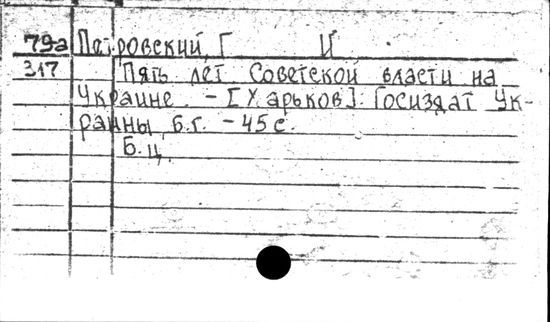 79а Петровский, Г И
317 Пять лет Советской власти на
Украине. - [Харьков]: Госиздат Ук-
раины, б.г. - 45 с.
Б.ц.